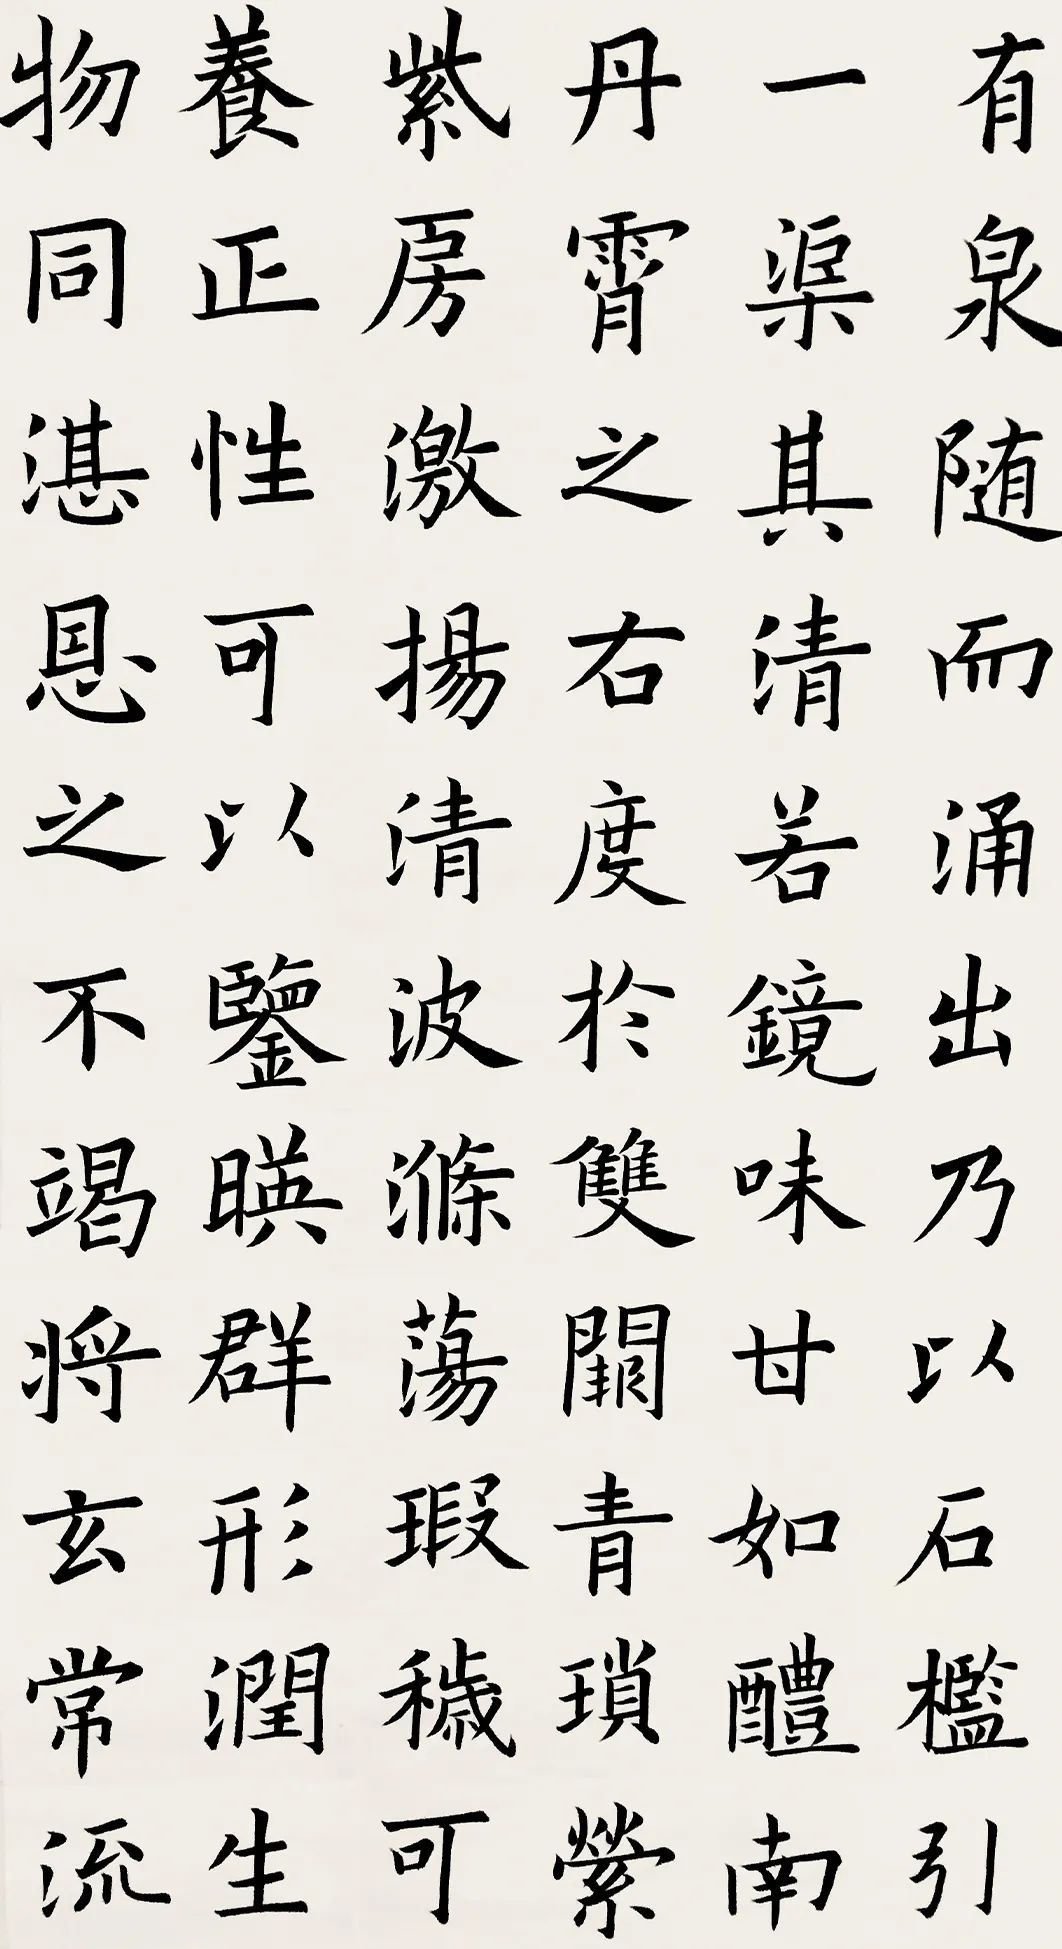 有泉随而涌出乃以石檻引
一渠其清若鏡味甘如醴南
丹霄之右度於雙闕青瑣縈
紫房激揚清波滌蕩瑕穢可
養正性可以鑒暎群形潤生
物同湛恩之不竭將玄常流